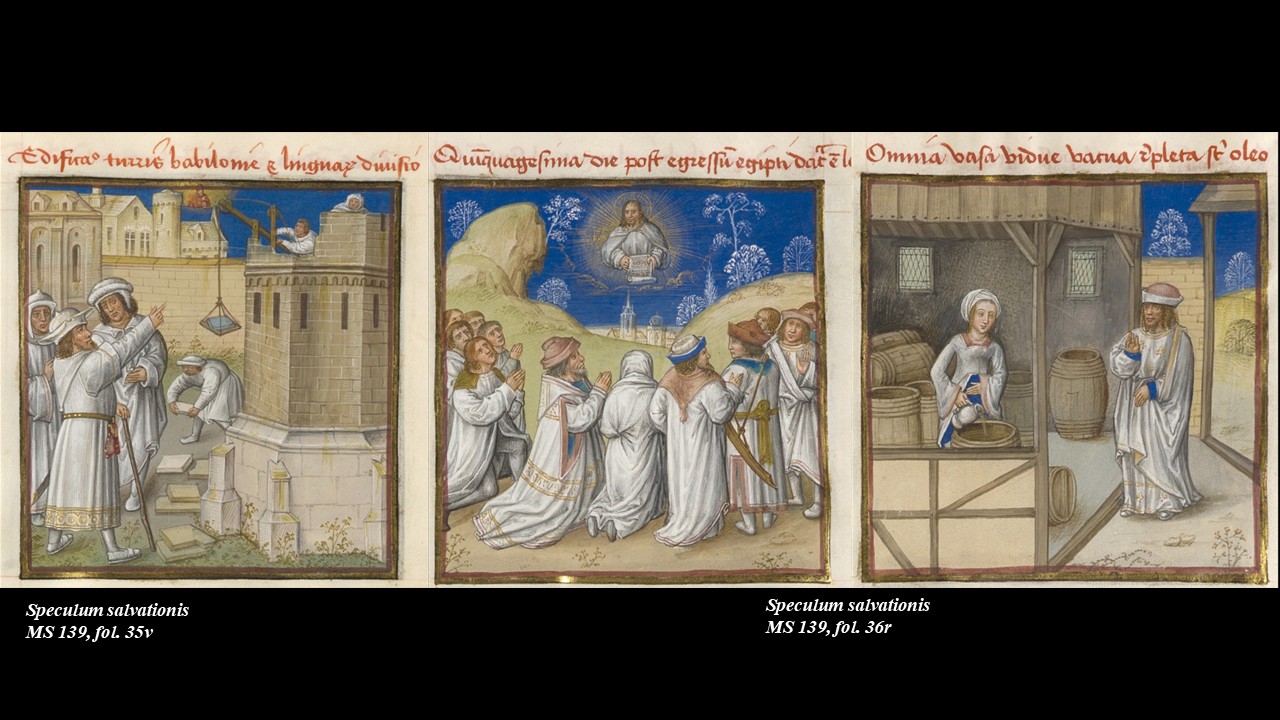 Edificaº turris babilonie & linguaꝝ divisio
Quīquagesima die post egressū egipti dat̄ ē l
Omnia vasa vidue vacua r̄pleta st̄ oleo
Speculum salvationis
MS 139, fol. 35v
Speculum salvationis
MS 139, fol. 36r